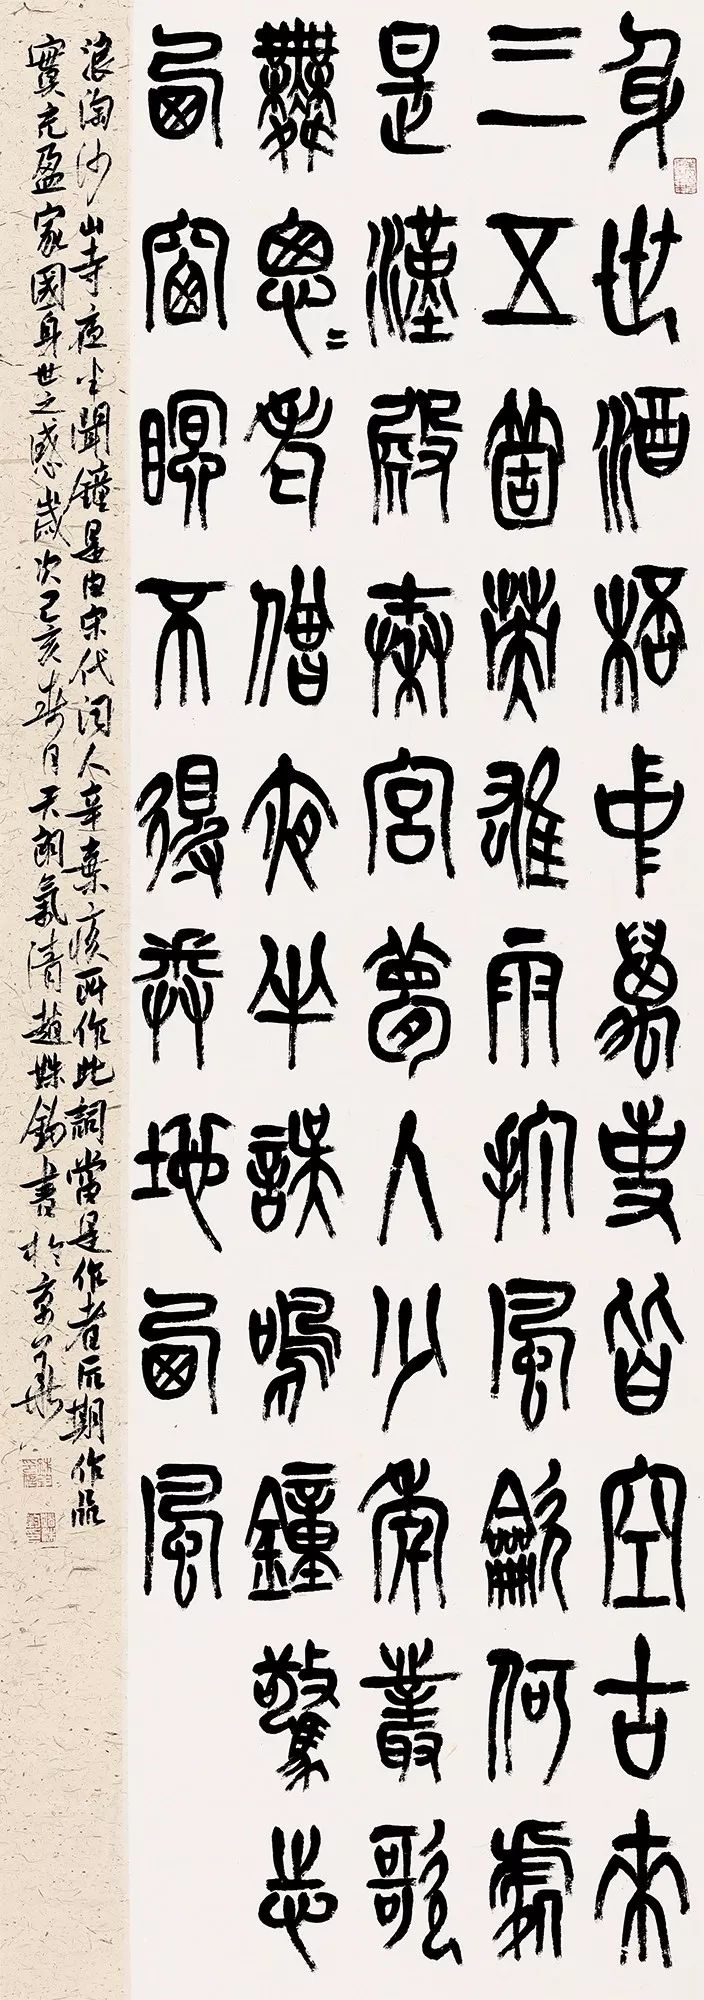 身世酒桮中萬事皆空古來
三五箇英雄雨打風龡何處
是漢殿秦宮夢入少年叢歌
舞悤〻老僧夜半誤鳴鐘驚志
西窗瞑不得卷地西風
浪淘沙山寺夜半聞鐘是由宋代詞人辛棄疾所作此詞當是作者后期作品
實充盈家國身世之感歲次己亥春月天朗氣清趙書於京華